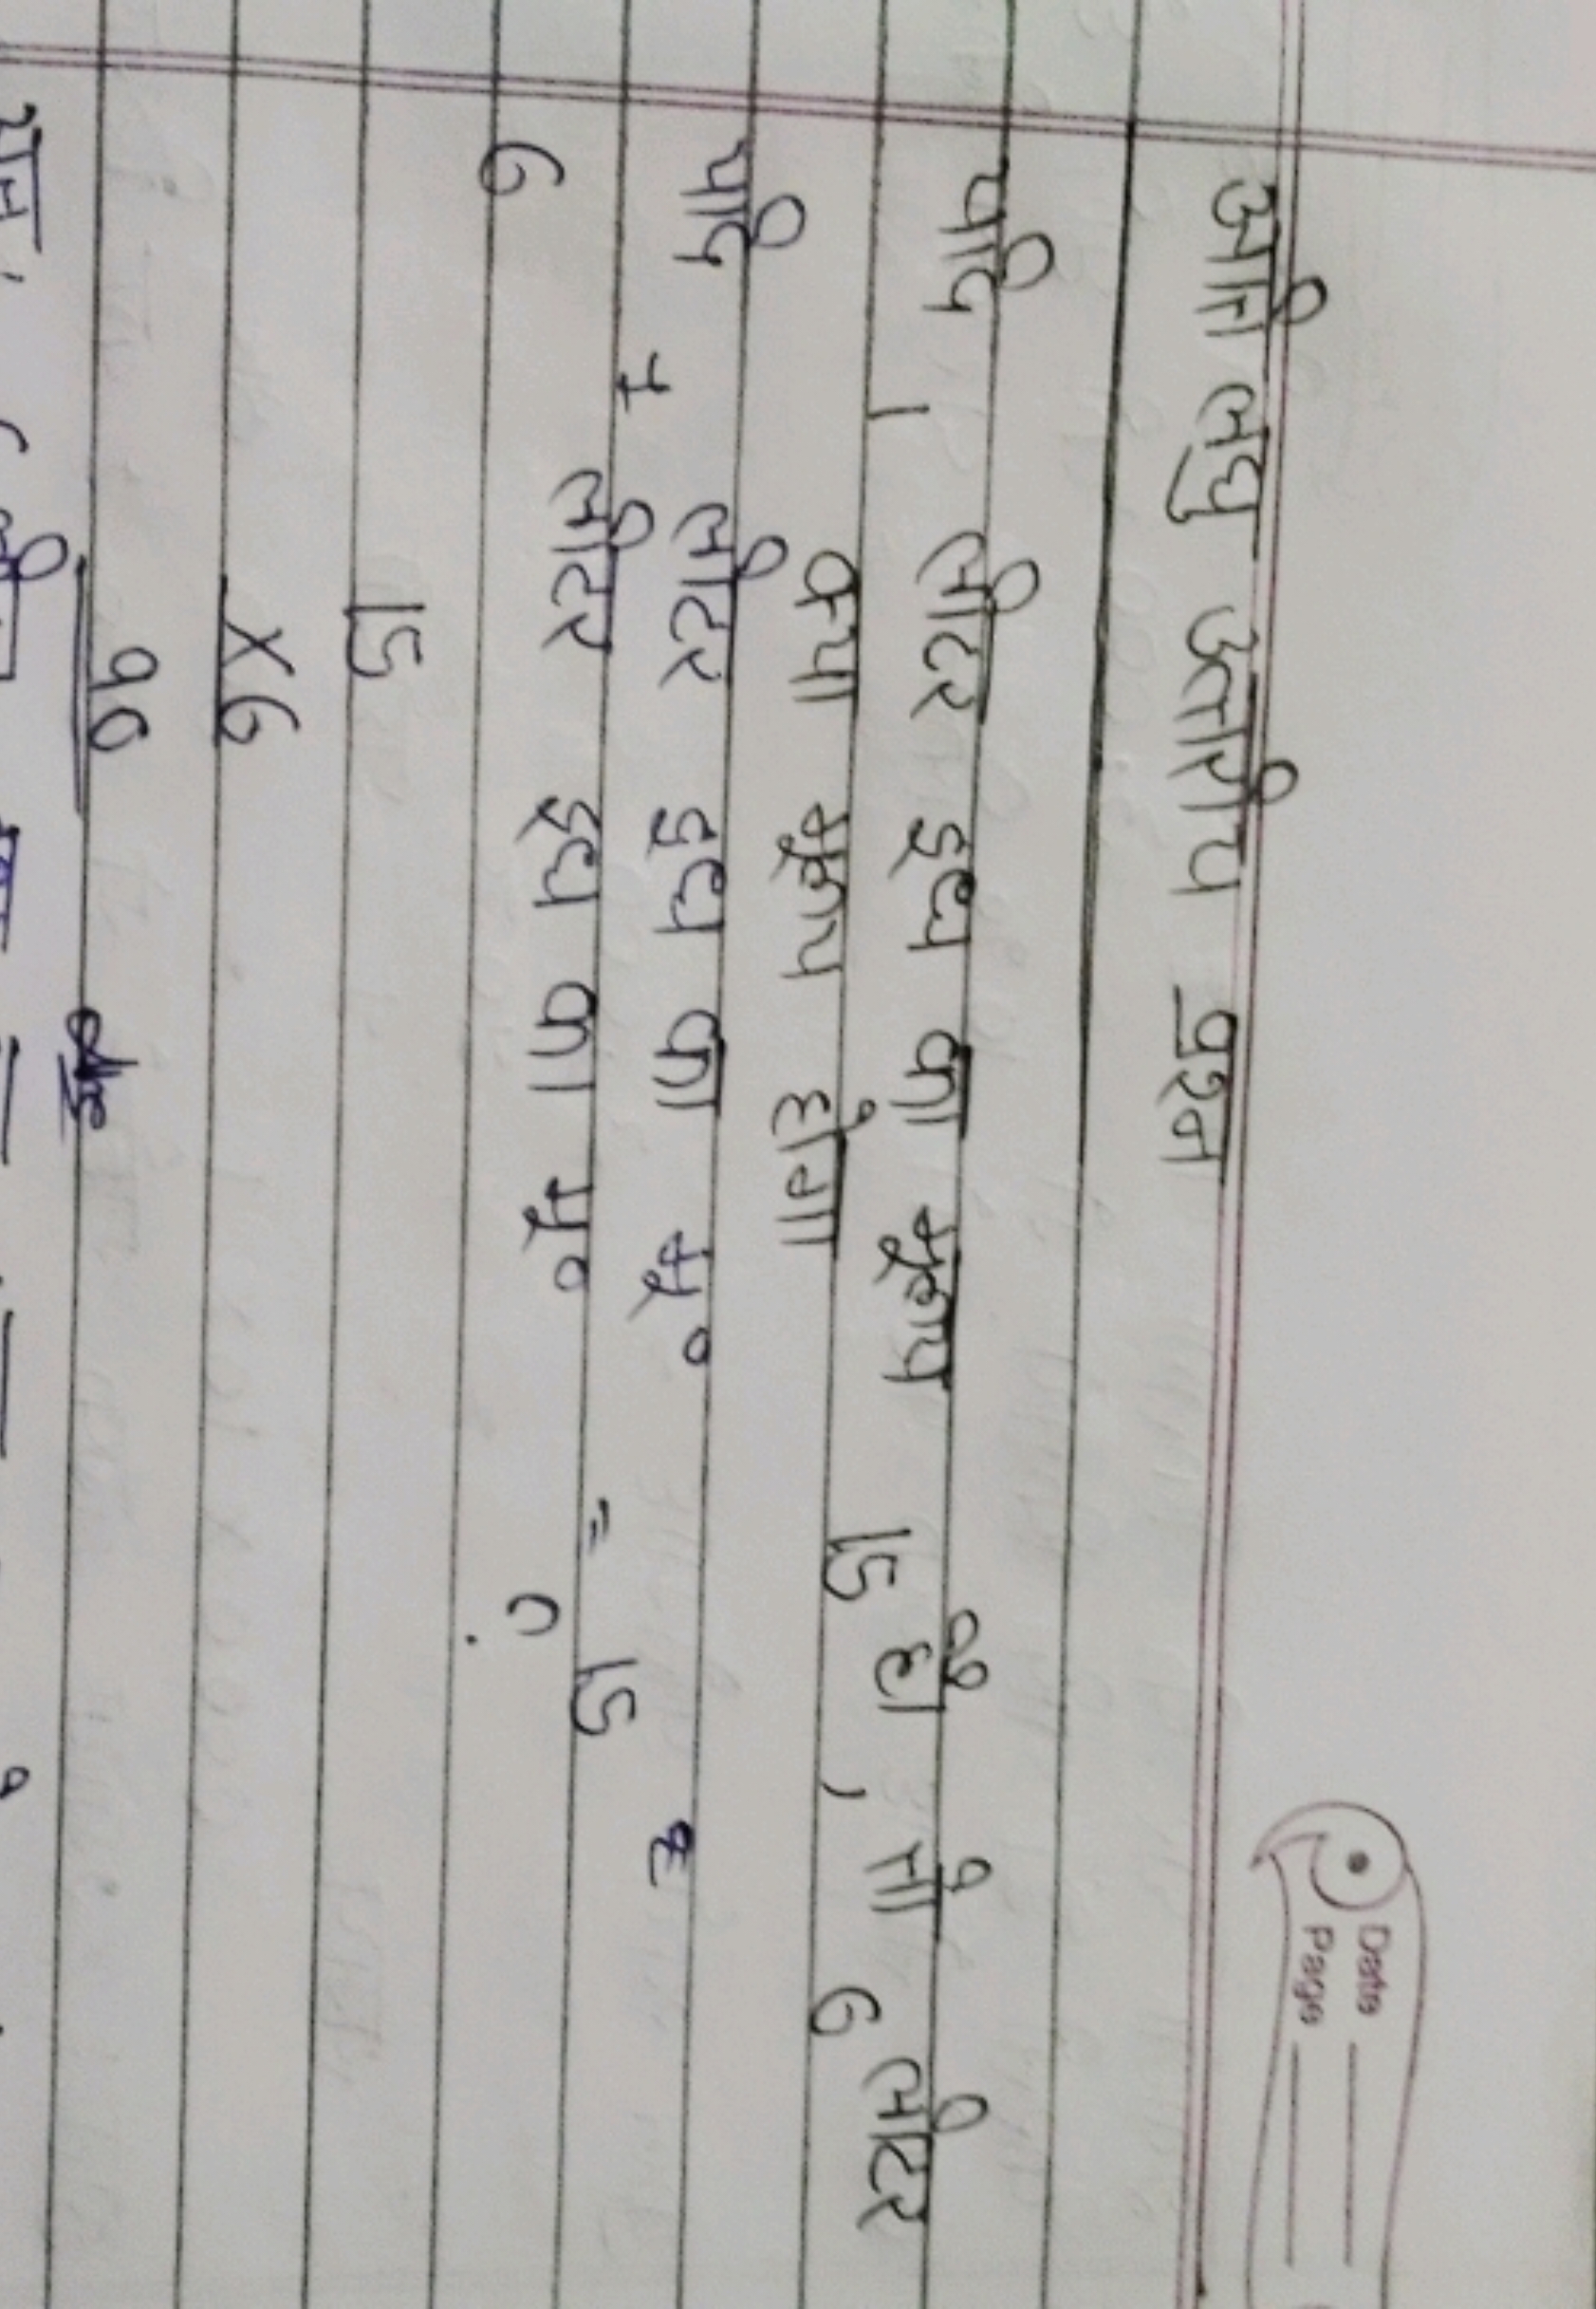 Date
Page
अति लघु उत्तरीय प्रश्न
यदि 1 लीटर दूध का मूल्य 15 हो, तो 6 लीटर
क्या मूल्य होगा
यदि 1 लीटर दूध का मू० = 15
6 लीटर दूध का मू० ?
15
X6
90